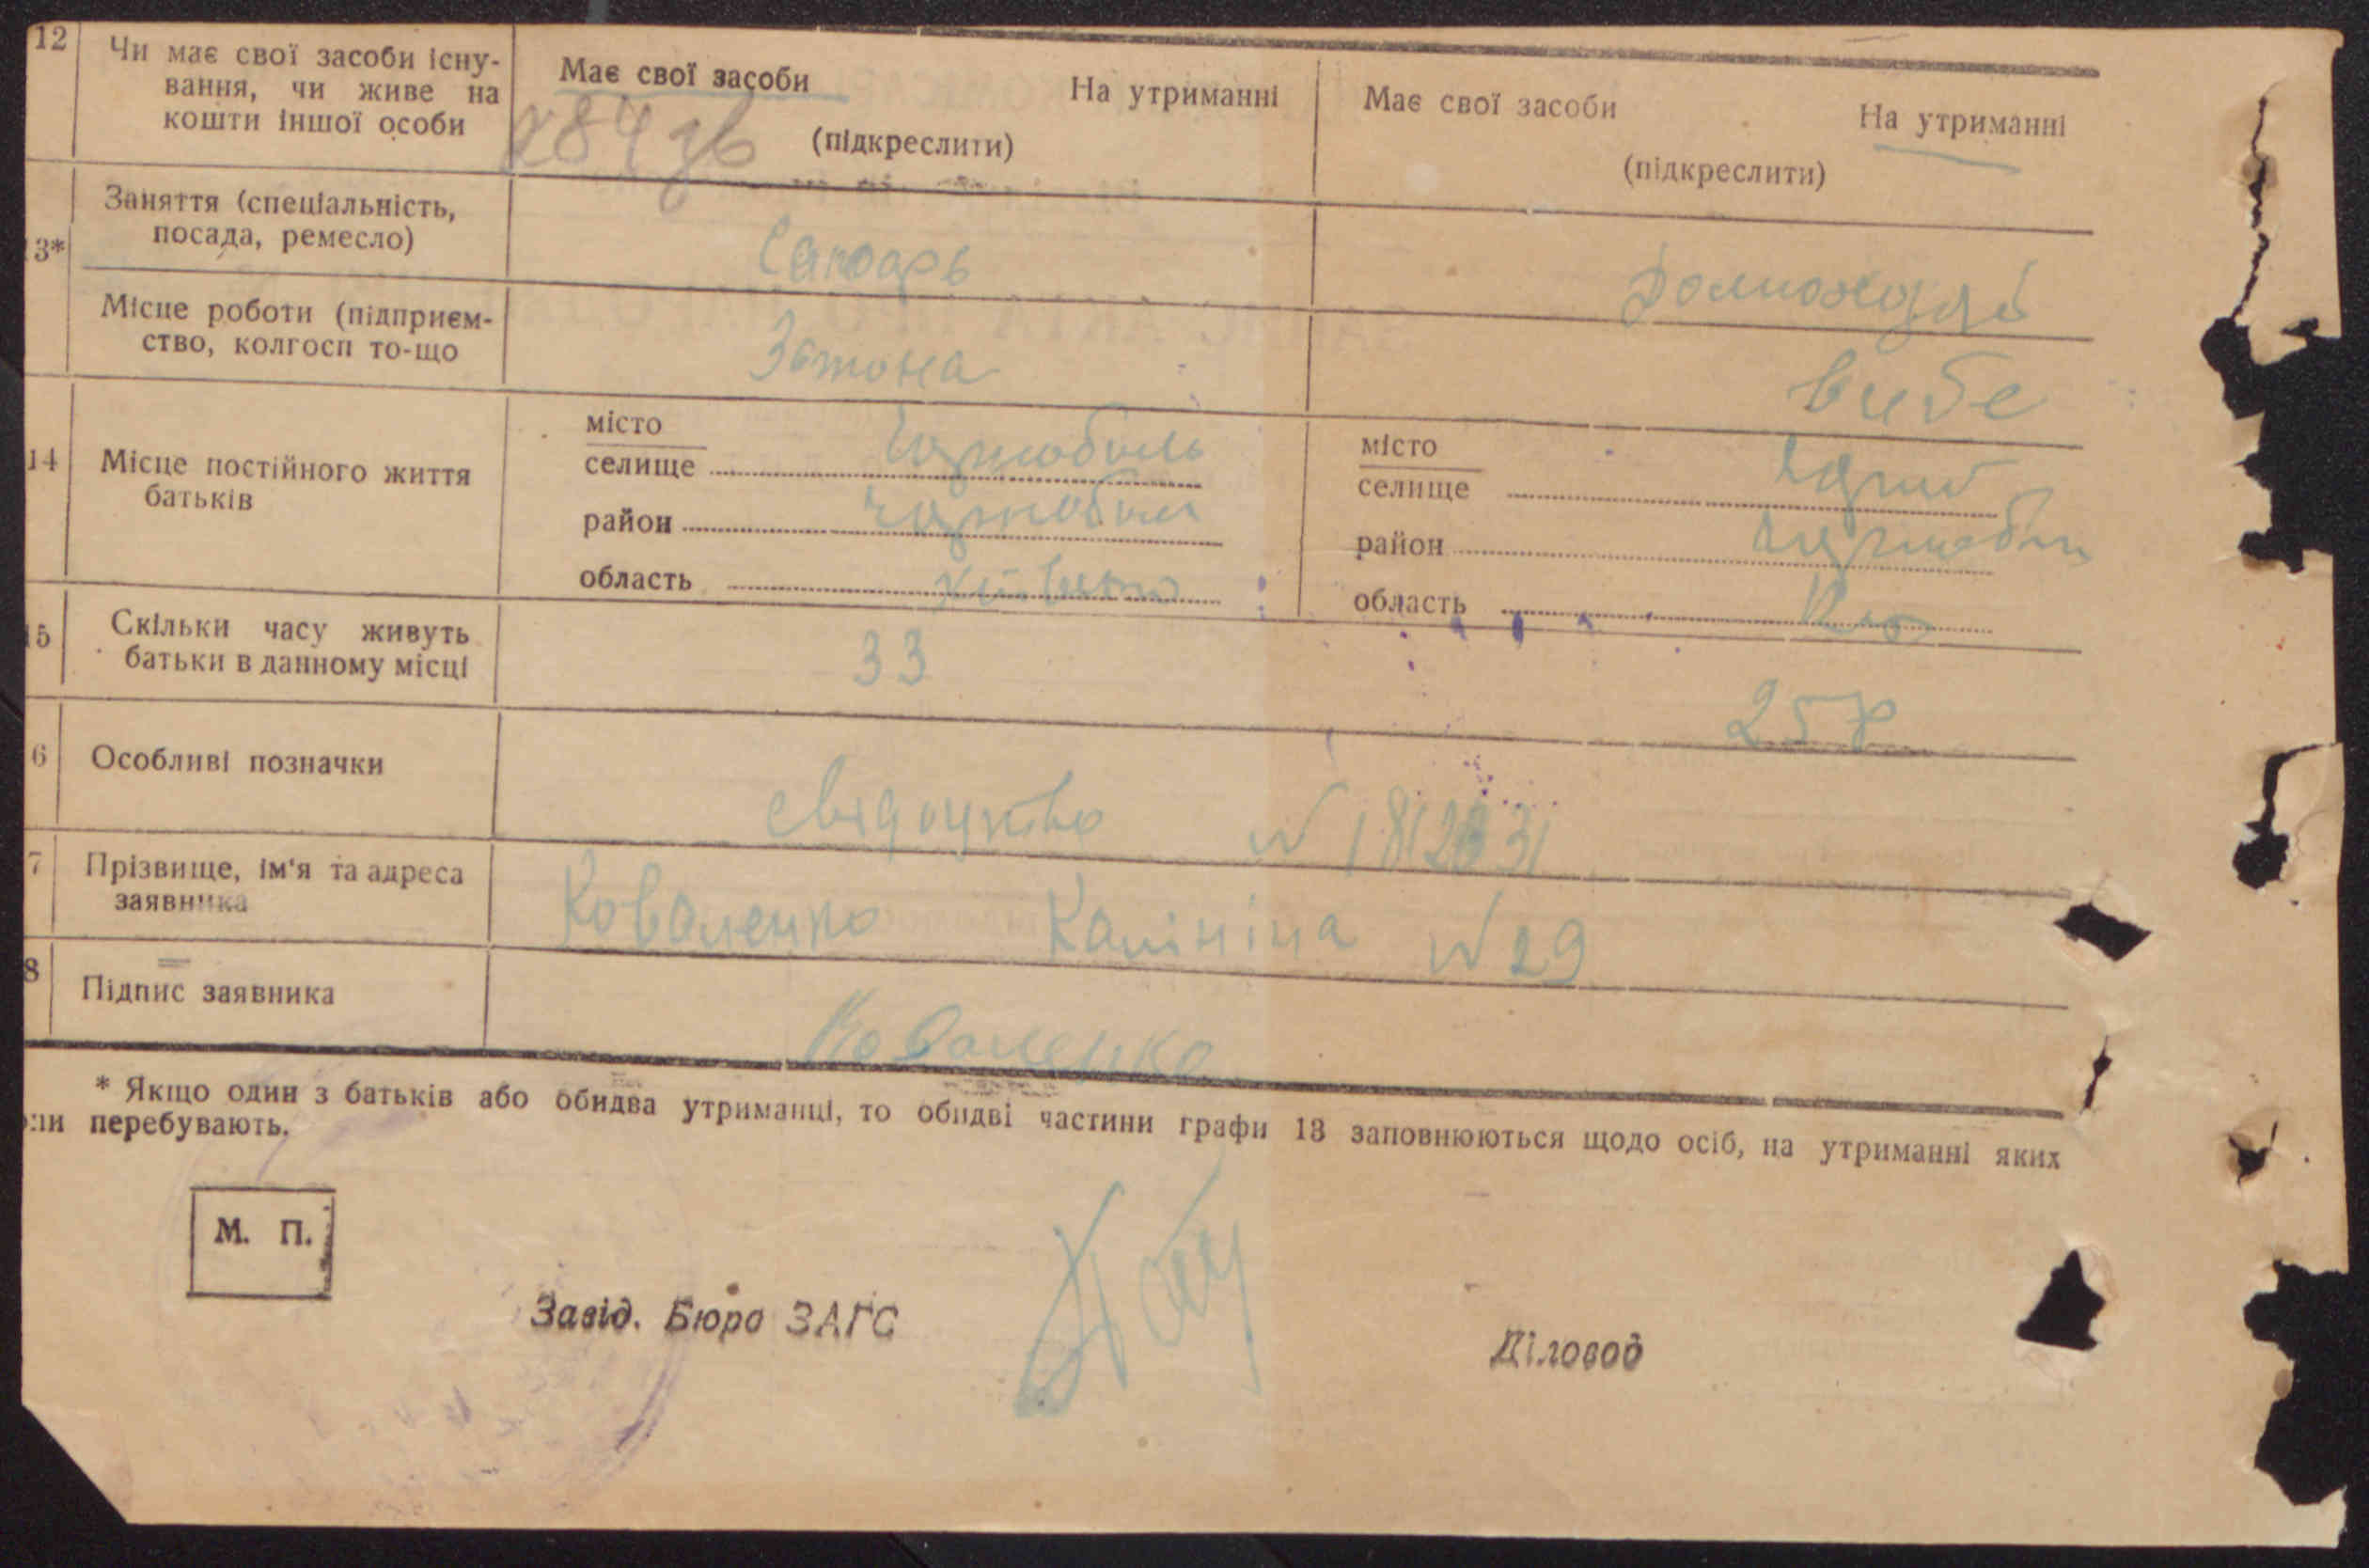 12
Чи має свої засоби існу-
вання, чи живе на
кошти іншої особи
Має свої засоби
На утриманні
(підкреслити)
Має свої засоби
На утриманні
(підкреслити)
3*
Заняття (спеціальність,
посада, ремесло)
Місце роботи (підприєм-
ство, колгосп то-що
Затона
14
Місце постійного життя
батьків
місто
селище Чорнобиль
район
область
місто
селище
район
область
5
Скільки часу живуть
батьки в данному місці
33
25
6
Особливі позначки
свідоцтво
7
Прізвище, ім'я та адреса
заявника
Коваленко Калініна N 29
8
Підпис заявника
Коваленко
* Якщо один з батьків або обидва утриманці, то обидві частини графи 13 заповнюються щодо осіб, на утриманні яких
перебувають.
М. П.
Завід. Бюро ЗАГС
Діловод